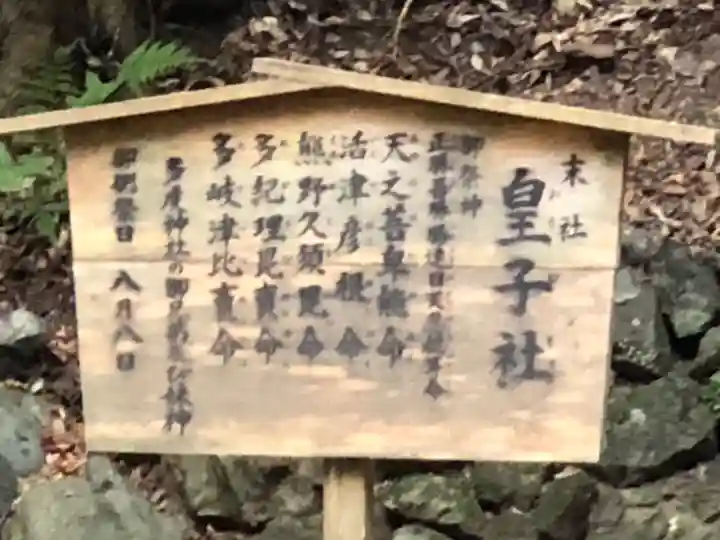 末社
皇子社
御祭神
正哉吾勝勝速日天忍穂耳命
天之菩卑能命
活津彦根命
熊野久須毘命
多紀理毘賣命
多岐津比賣命
多度神社の御兄弟姉妹神
御例祭日 八月八日